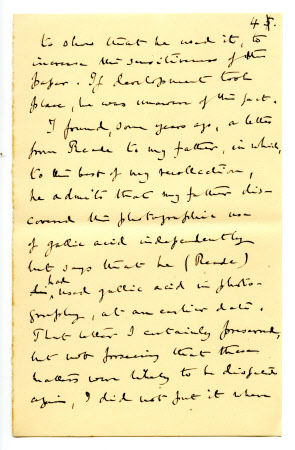 45.
to show that he used it, to
increase the sensitiveness of the
paper. If development took
place, he was unaware of the fact.
I found, some years ago, a letter
from Reade to my father, in which,
to the best of my recollection,
he admits that my father dis-
covered the photographic use
of gallic acid independently
but says that he (Reade)
had used gallic acid in photo-
graphy, at an earlier date.
That letter I certainly preserved,
but not foreseeing that these
matters were likely to be disputed
again, I did not put it where